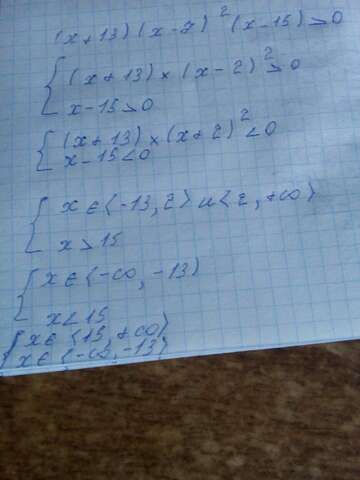 (x+13)(x-2)²(x-15)>0
{(x+13)×(x-2)²>0
x-15>0
{(x+13)×(x+2)²<0
x-15<0
{x∈⟨-13,2⟩ u⟨2,+∞⟩
x>15
{x∈⟨-∞,-13⟩
x<15
{x∈⟨15,+∞⟩
x∈⟨-∞,-13⟩